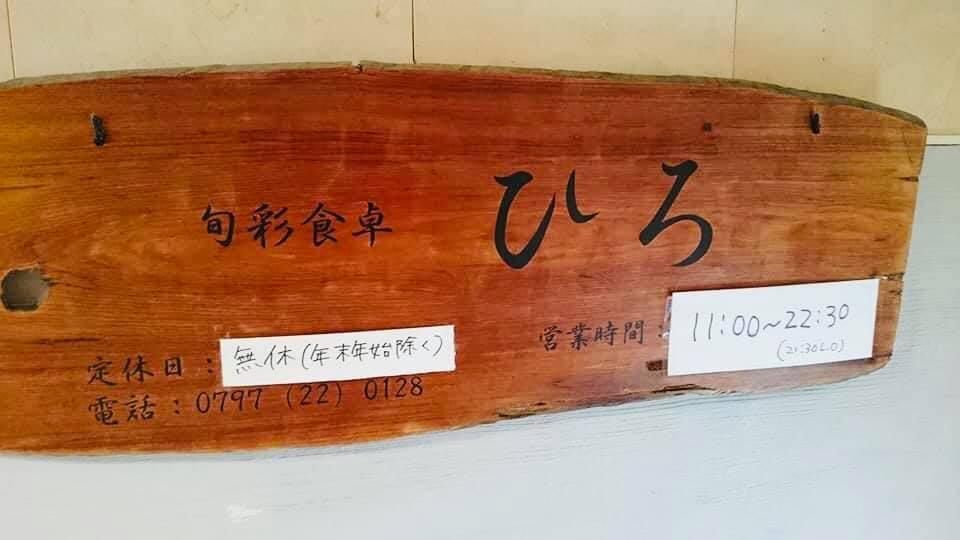 旬彩食卓 ひろ
定休日：無休(年末年始除く)
営業時間：11:00〜22:30
(21:30L.O)
電話：0797 (22) 0128